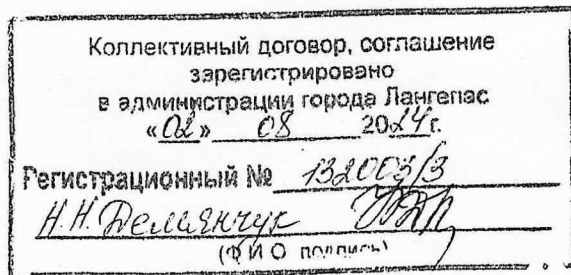 Коллективный договор, соглашение
зарегистрировано
в администрации города Лангепас
«02» 08 2024 г.
Регистрационный № 132003/3
Н.Н. Демянчук
(Ф И О подпись)